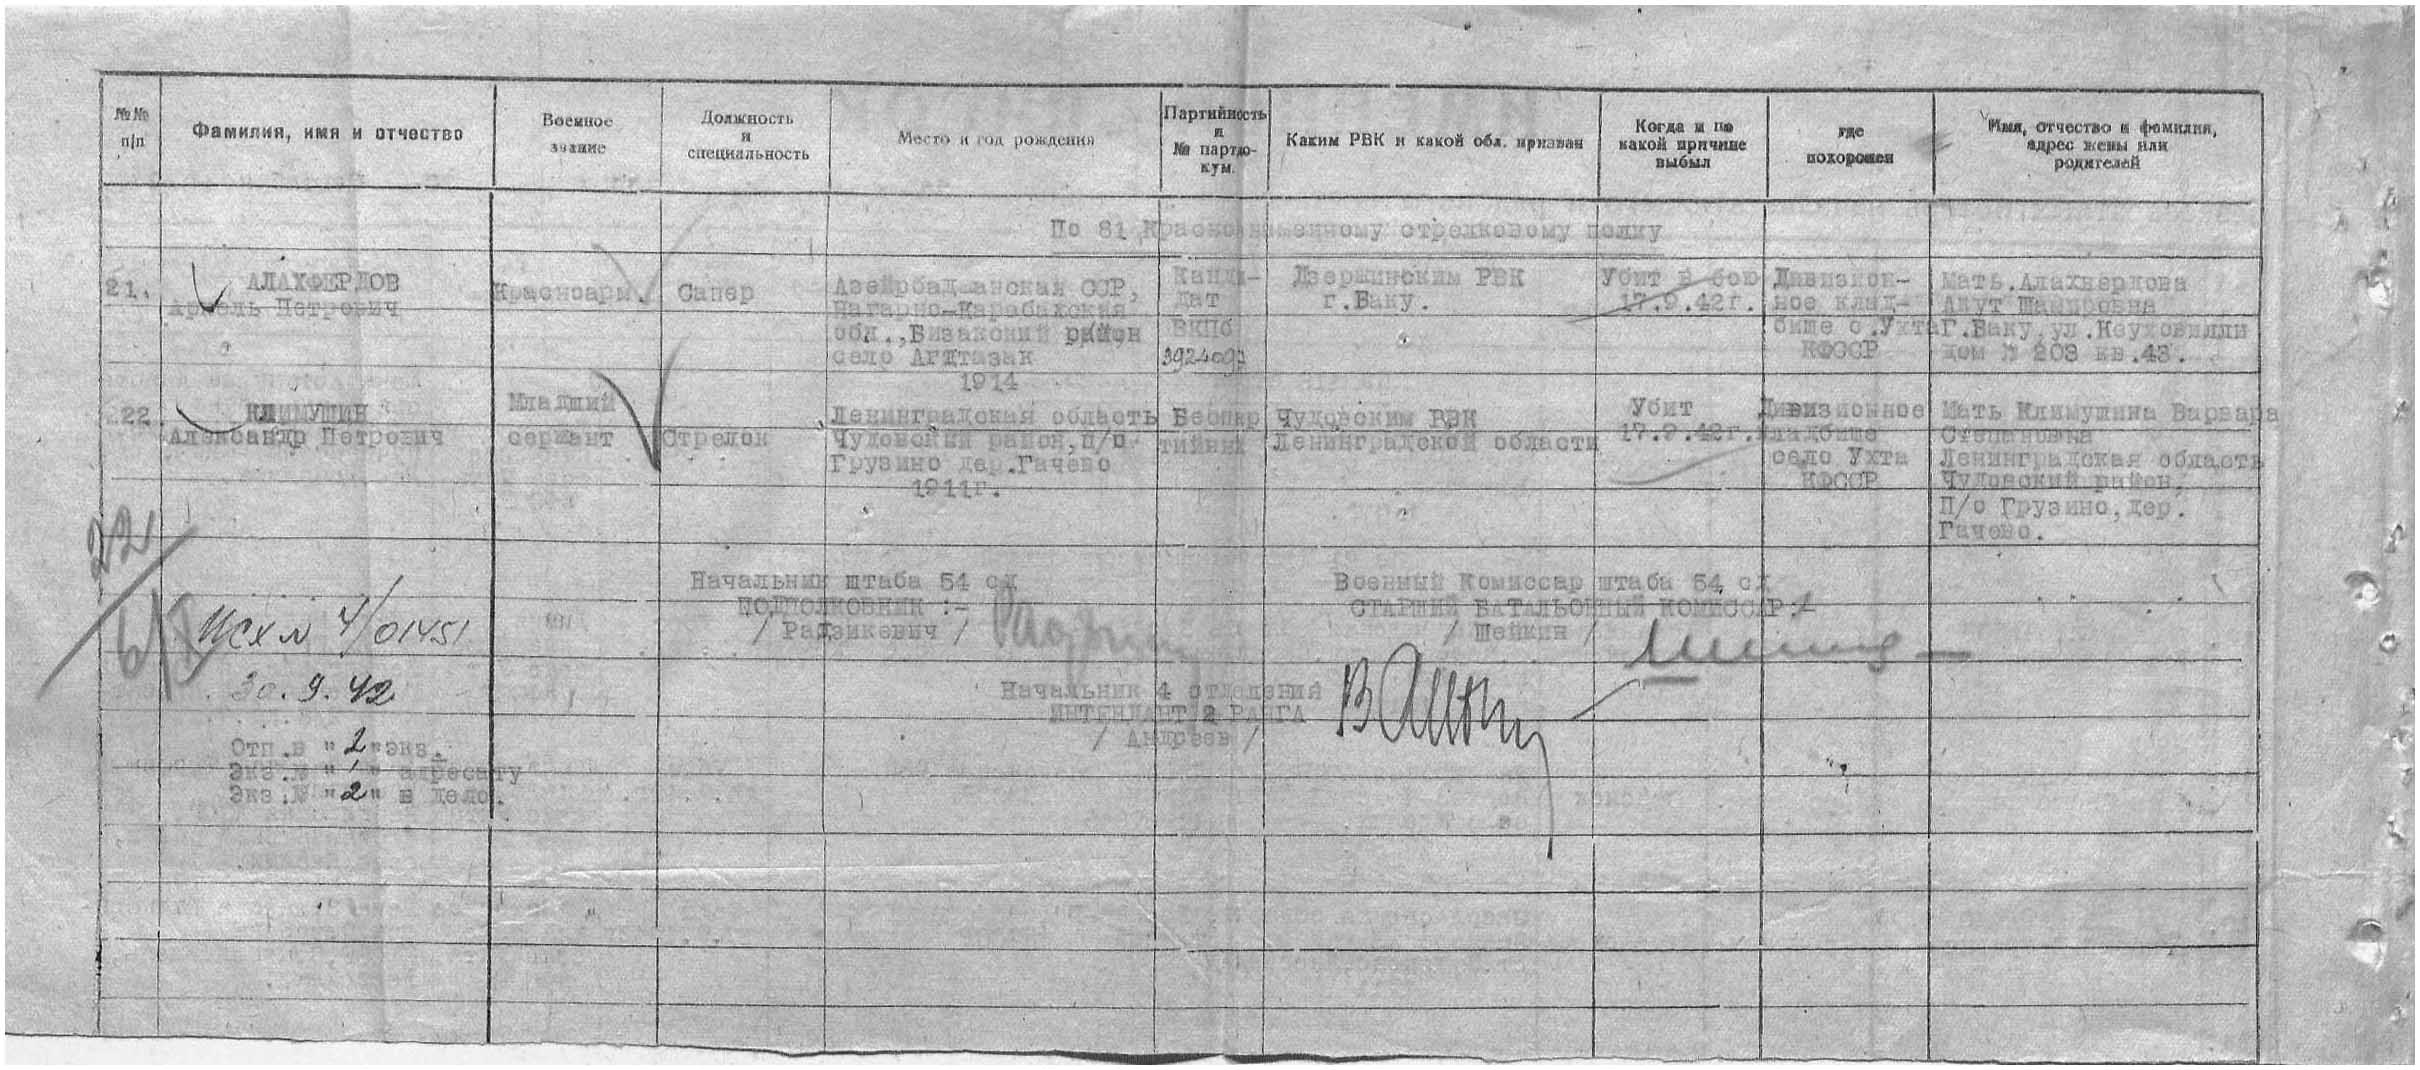 №№ п/п
Фамилия, имя и отчество
Военное звание
Должность и специальность
Место и год рождения
Партийность и № партдокум.
Каким РВК и какой обл. призван
Когда и по какой причине выбыл
где похоронен
Имя, отчество и фамилия, адрес жены или родителей
По 81 Краснознаменному стрелковому полку
21.
АЛАХФЕРДОВ
Петрович
Красноарм.
Сапер
Азейрбаджанская ССР,
Нагарно-Карабахская
обл., Визакский район
село
1914
Канди-
дат
ВКПб
3924097
Дзержинским РВК
г.Баку.
Убит в бою
17.9.42г.
Дивизион-
ное клад-
бище с.Ухта
КФССР
Мать.Алахвердова
Шамировна
Г.Баку,ул.
дом № 203 кв.43.
22.
КЛИМУШИН
Александр Петрович
Младший
сержант
Стрелок
Ленинградская область
Чудовский район,п/о
Грузино дер.Гачево
1911г.
Беспар
тийный
Чудовским РВК
Ленинградской области
Убит
17.9.42г.
Дивизионное
кладбище
село Ухта
КФССР
Мать Климушина Варвара
Степановна
Ленинградская область
Чудовский район,
П/о Грузино,дер.
Гачево.
22
Начальник штаба 54 сд
ПОДПОЛКОВНИК :-
/ Радзикевич /
Военный Комиссар штаба 54 сд
СТАРШИЙ БАТАЛЬОННЫЙ КОМИССАР:-
/ Шейкин /
Исх № 4/01451
30.9.42
Начальник 4 отделения
ИНТЕНДАНТ 2 РАНГА
/ Андреев /
Отп.в "2"экз.
Экз.№ "1" адресату
Экз.№ "2" в дело.